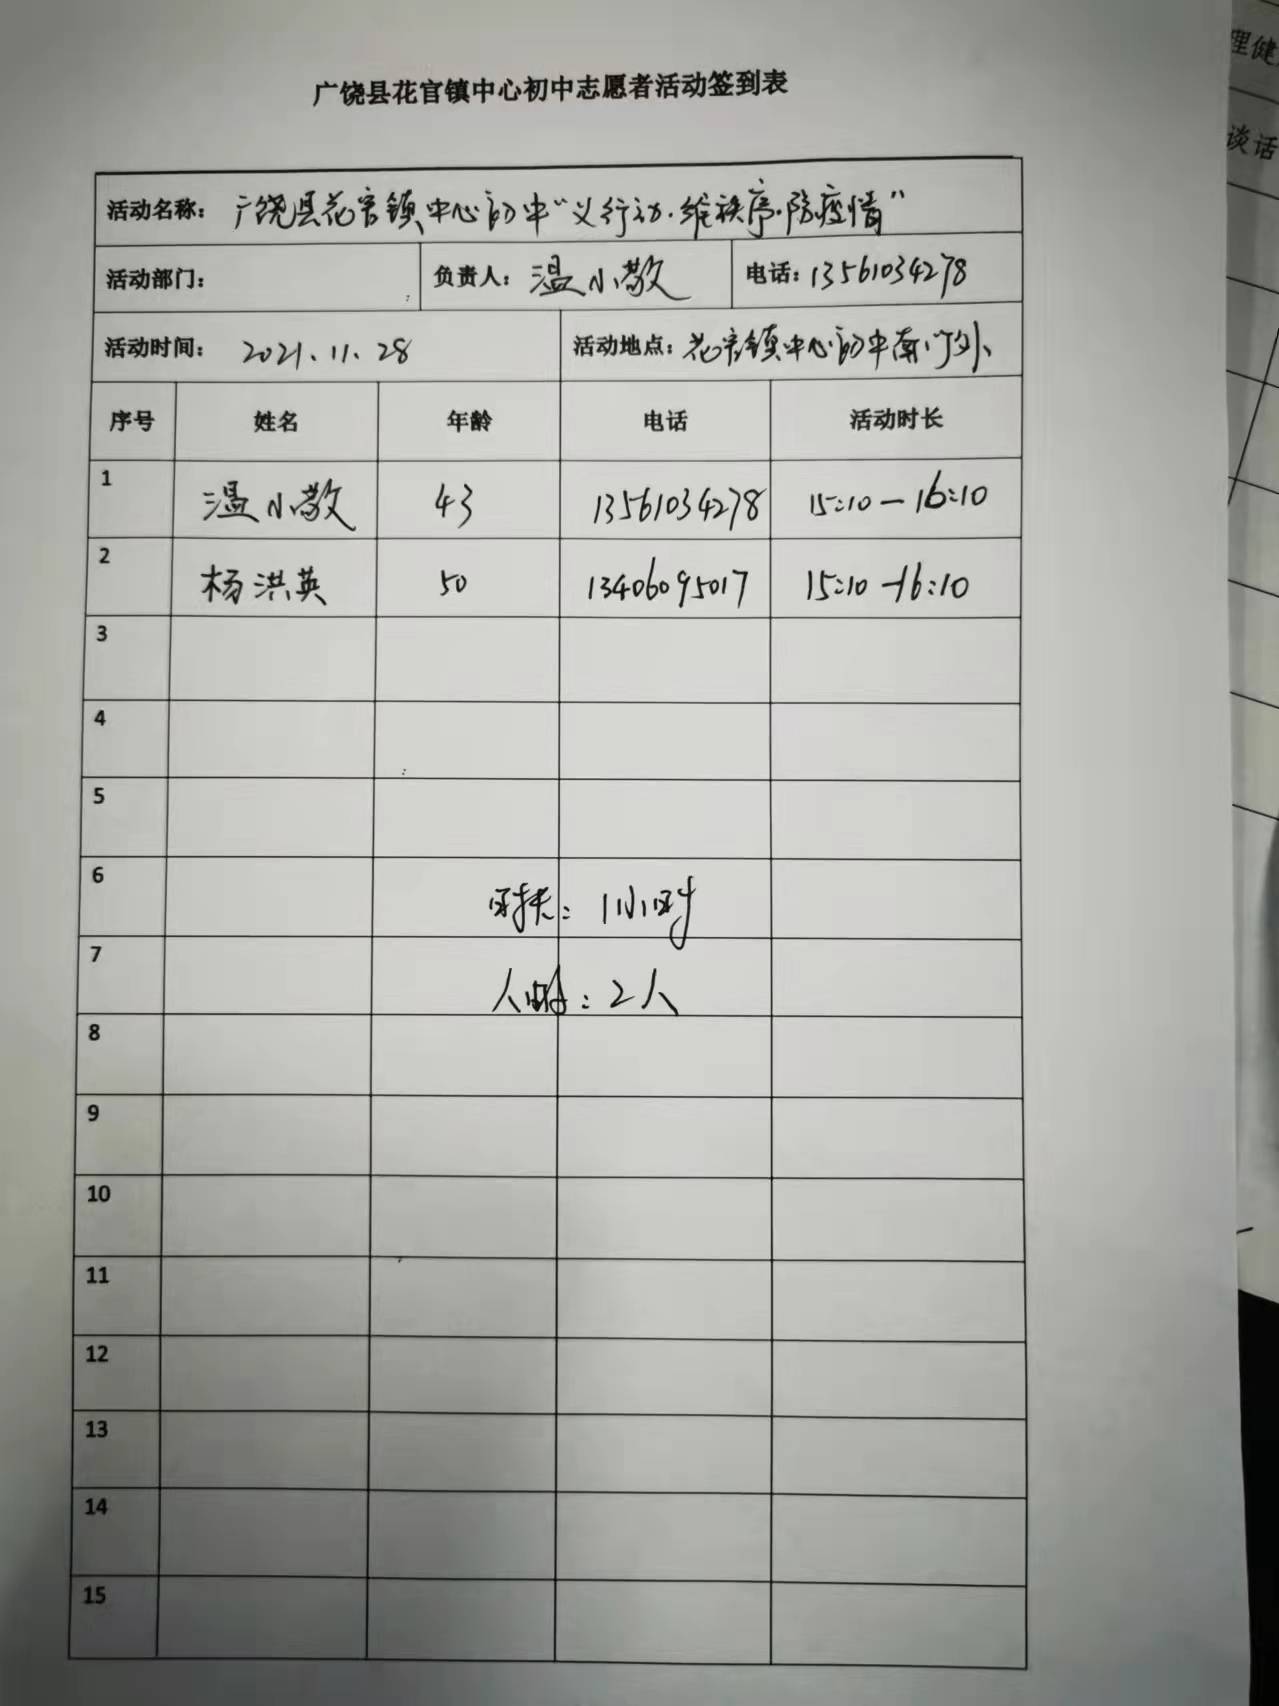 广饶县花官镇中心初中志愿者活动签到表
活动名称: 广饶县花官镇中心初中“义行动·维秩序·防疫情”
活动部门: 负责人: 温小敬 电话: 13561034278
活动时间: 2021、11、28 活动地点: 花官镇中心初中南门外、
序号 姓名 年龄 电话 活动时长
1 温小敬 43 13561034278 15:10—16:10
2 杨洪英 50 13406095017 15:10—16:10
3
4
5
6 时长: 1小时
7 人: 2人
8
9
10
11
12
13
14
15
理健
谈话